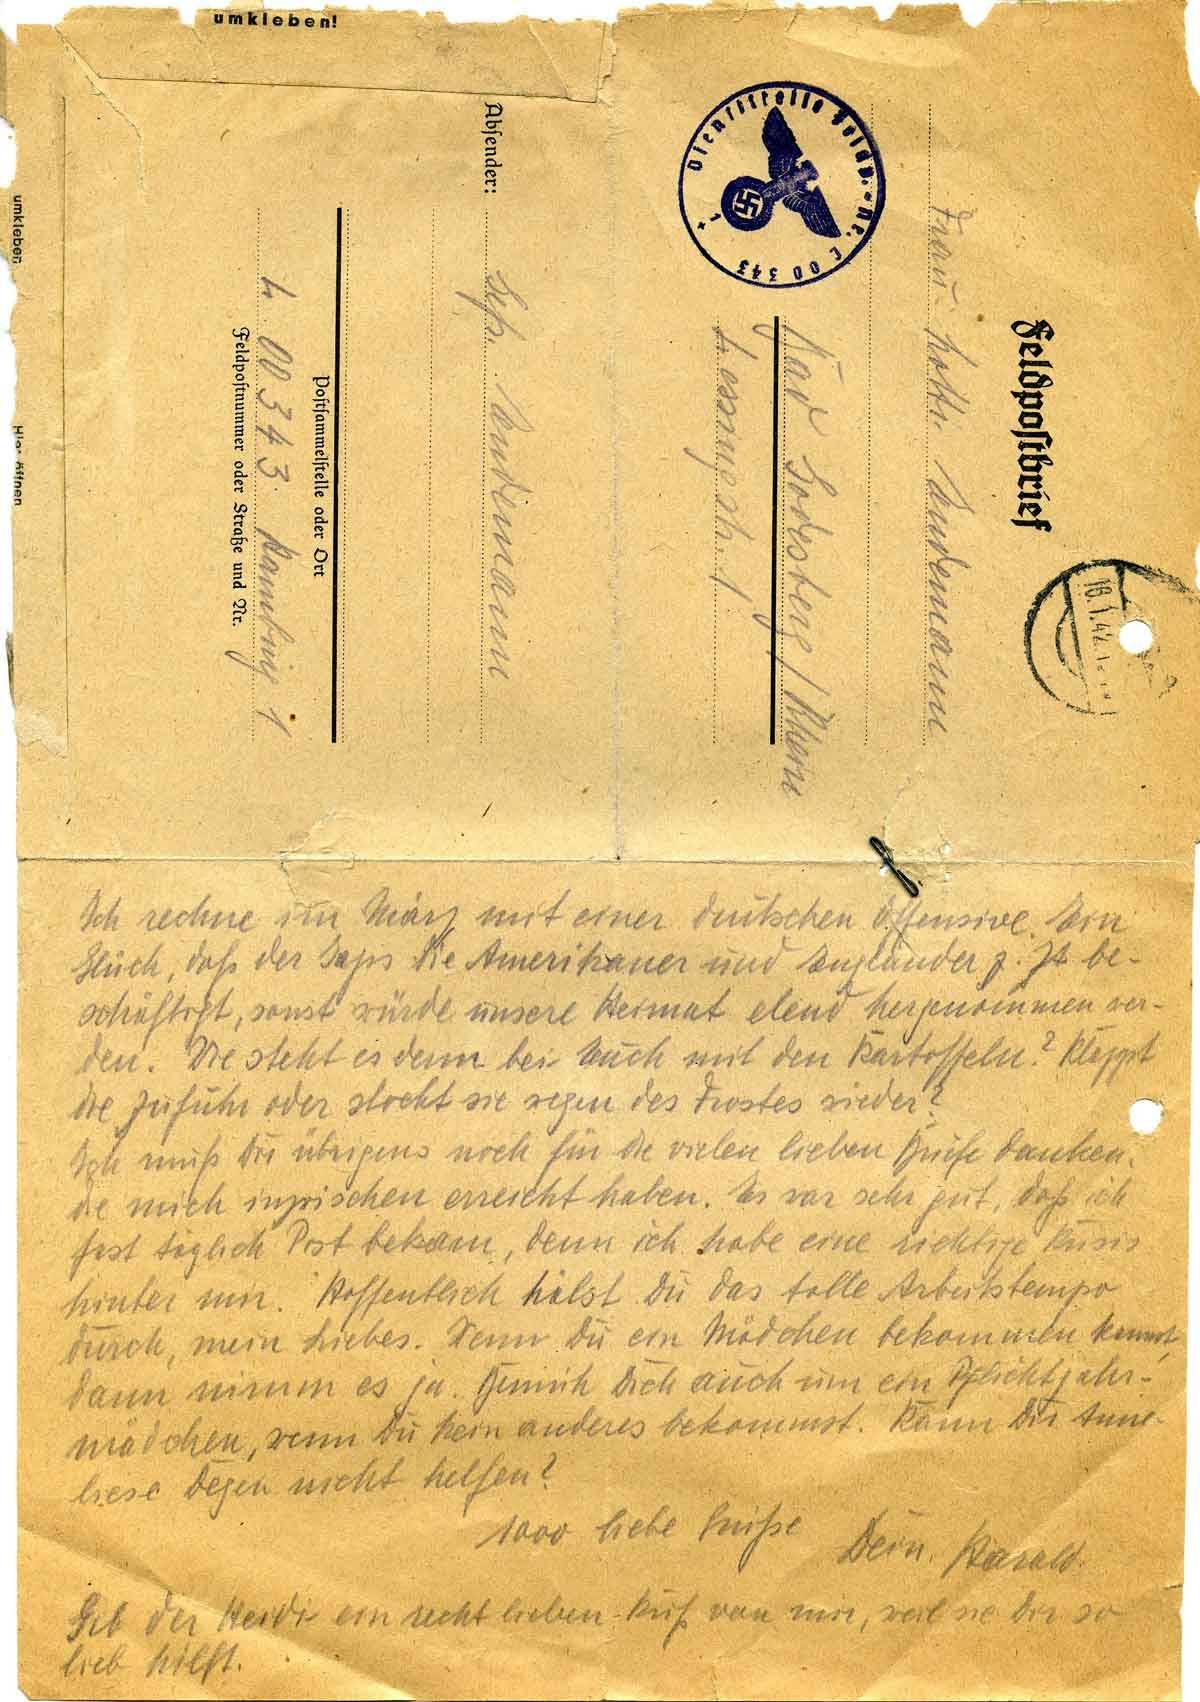 umkleben!
umkleben
Hier öffnen
Feldpostbrief
18.1.42
Frau Lotti Endemann
Dienststelle Feldp.-Nr. L 00 343
Bad Godesberg/Rhein
Lessingstr. 1
Absender: Gefr. Endemann
Postsammelstelle oder Ort
L. 00 343 Hamburg 1
Feldpostnummer oder Straße und Nr.
Ich rechne im März mit einer deutschen Offensive. Ein
Glück, daß der Japs die Amerikaner und Engländer z. Zt be-
schäftigt, sonst würde unsere Heimat elend hergenommen wer-
den. Wie steht es denn bei Euch mit den Kartoffeln? Klappt
die Zufuhr oder stockt sie wegen des Frostes wieder?
Ich muß Dir übrigens noch für die vielen lieben Briefe danken,
die mich inzwischen erreicht haben. Es war sehr gut, daß ich
fast täglich Post bekam, denn ich habe eine richtige Krisis
hinter mir. Hoffentlich hälst Du das tolle Arbeitstempo
durch, mein Liebes. Wenn Du ein Mädchen bekommen kannst,
dann nimm es ja. Bemüh Dich auch um ein Pflichtjahr-
mädchen, wenn Du kein anderes bekommst. Kann Dir Anne-
liese Degen nicht helfen?
1000 liebe Grüße
Dein Harald.
Gib der Heidi ein recht lieben Kuß von mir, weil sie Dir so
lieb hilft.